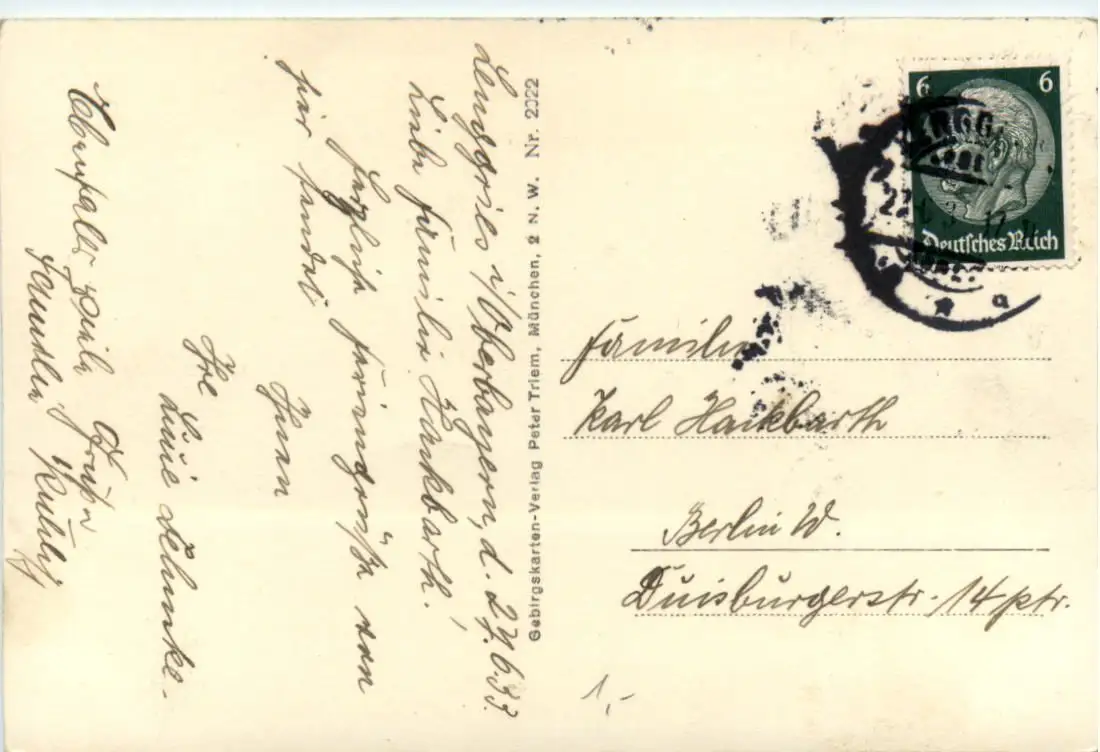 Lenggries i/Oberbayern, d. 27.6.33.
Liebe Familie Hackbarth!
Herzliche Feriengrüße von
hier sendet
Ihnen
Ihre
Ebenfalls viele Grüße
Gebirgskarten-Verlag Peter Triem, München, 2 N.W. Nr. 2022
6 6
Deutsches Reich
Familie
Karl Hackbarth
Berlin W.
Duisburgerstr. 14 ptr.
1,-